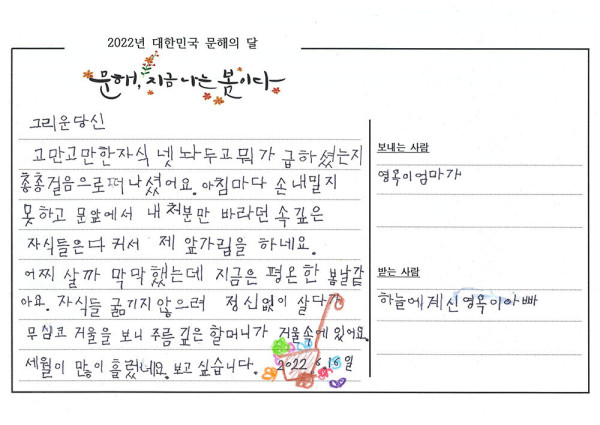 2022년 대한민국 문해의 달
문해, 지금 나는 봄이다
그리운당신
고만고만한자식 넷 놔두고 뭐가 급하셨는지
총총걸음으로떠나셨어요. 아침마다 손내밀지
못하고 문앞에서 내처분만 바라던 속깊은
자식들은다 커서 제 앞가림을 하네요.
어찌 살까 막막했는데 지금은 평온한 봄날같
아요. 자식들 굶기지않으려 정신없이 살다가
무심코 거울을 보니 주름 깊은 할머니가 거울속에 있어요.
세월이 많이 흘렀네요. 보고 싶습니다. 2022.6.16일
보내는 사람
영옥이엄마가
받는 사람
하늘에계신영옥이아빠